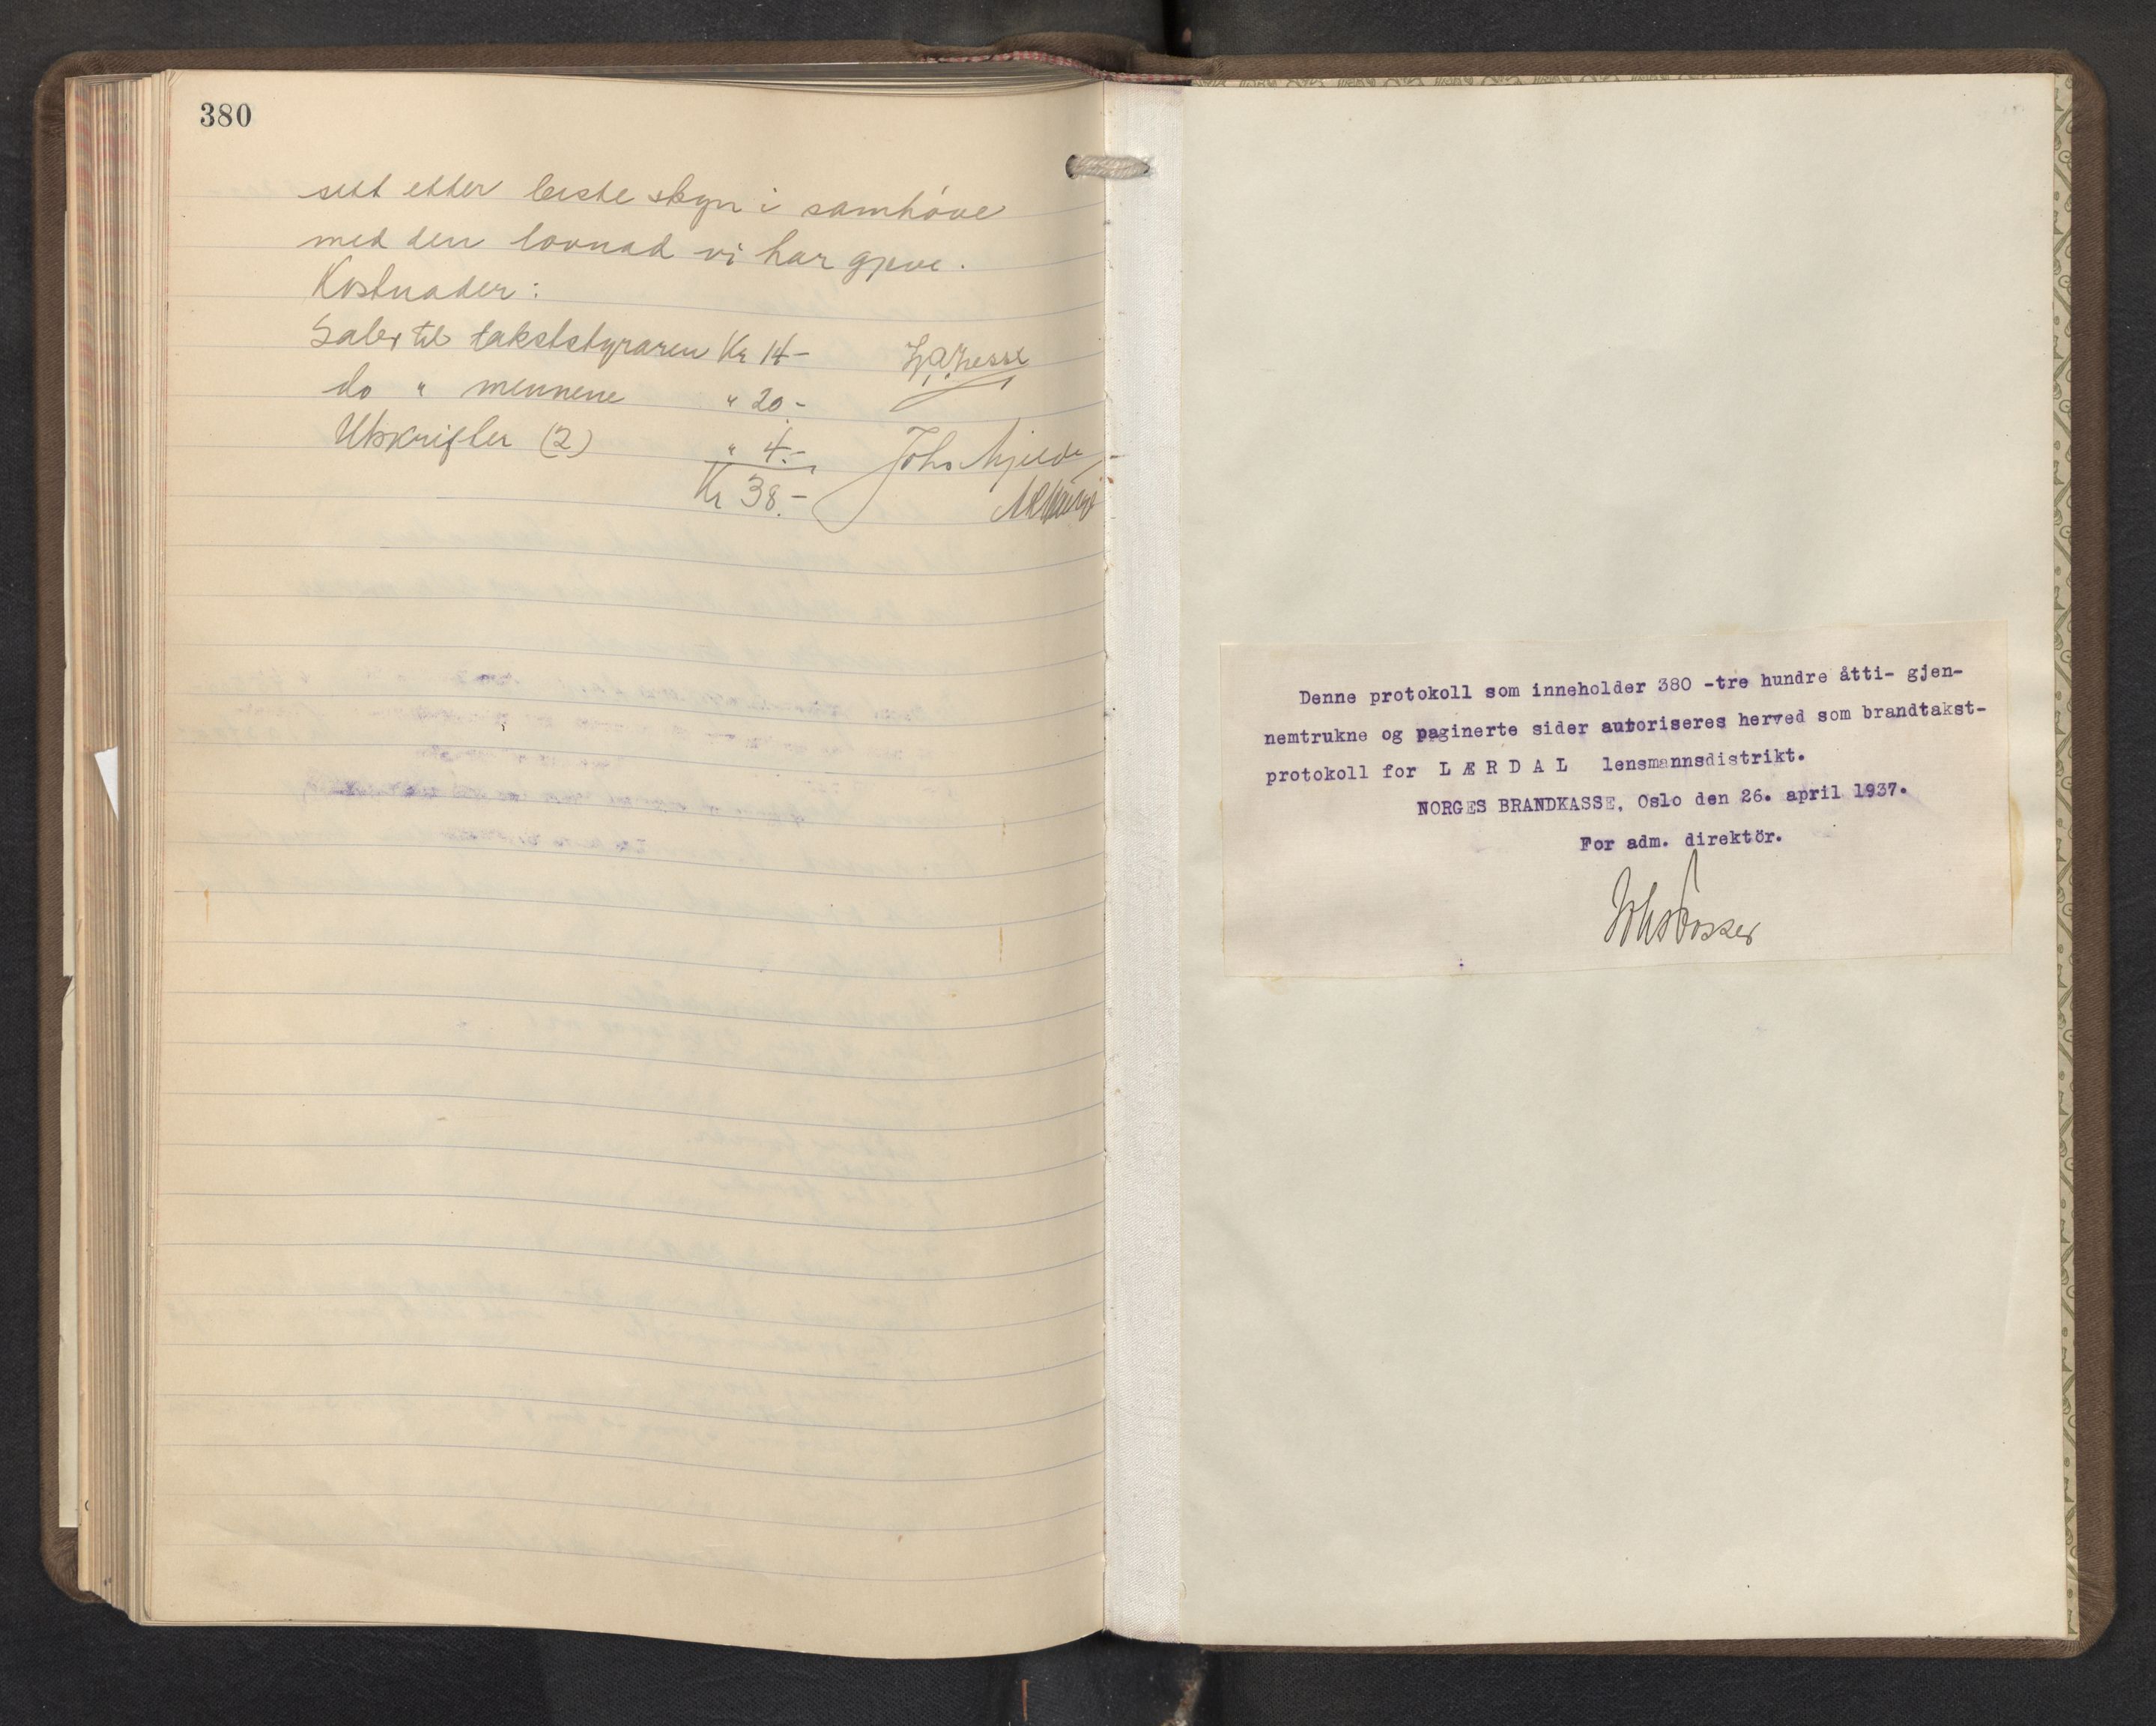 380
sett etter beste skyn i samhöve
med den lovnad vi har gjeve.
Kostnader:
Salær til takststyraren Kr 14-
do " mennene " 20.-
Utskrifter (2) " 4.-
Kr 38.-
Johs Mjelde
Denne protokoll som inneholder 380 -tre hundre åtti- gjen-
nemtrukne og paginerte sider autoriseres herved som brandtakst-
protokoll for L Æ R D A L lensmannsdistrikt.
NORGES BRANDKASSE, Oslo den 26. april 1937.
For adm. direktör.